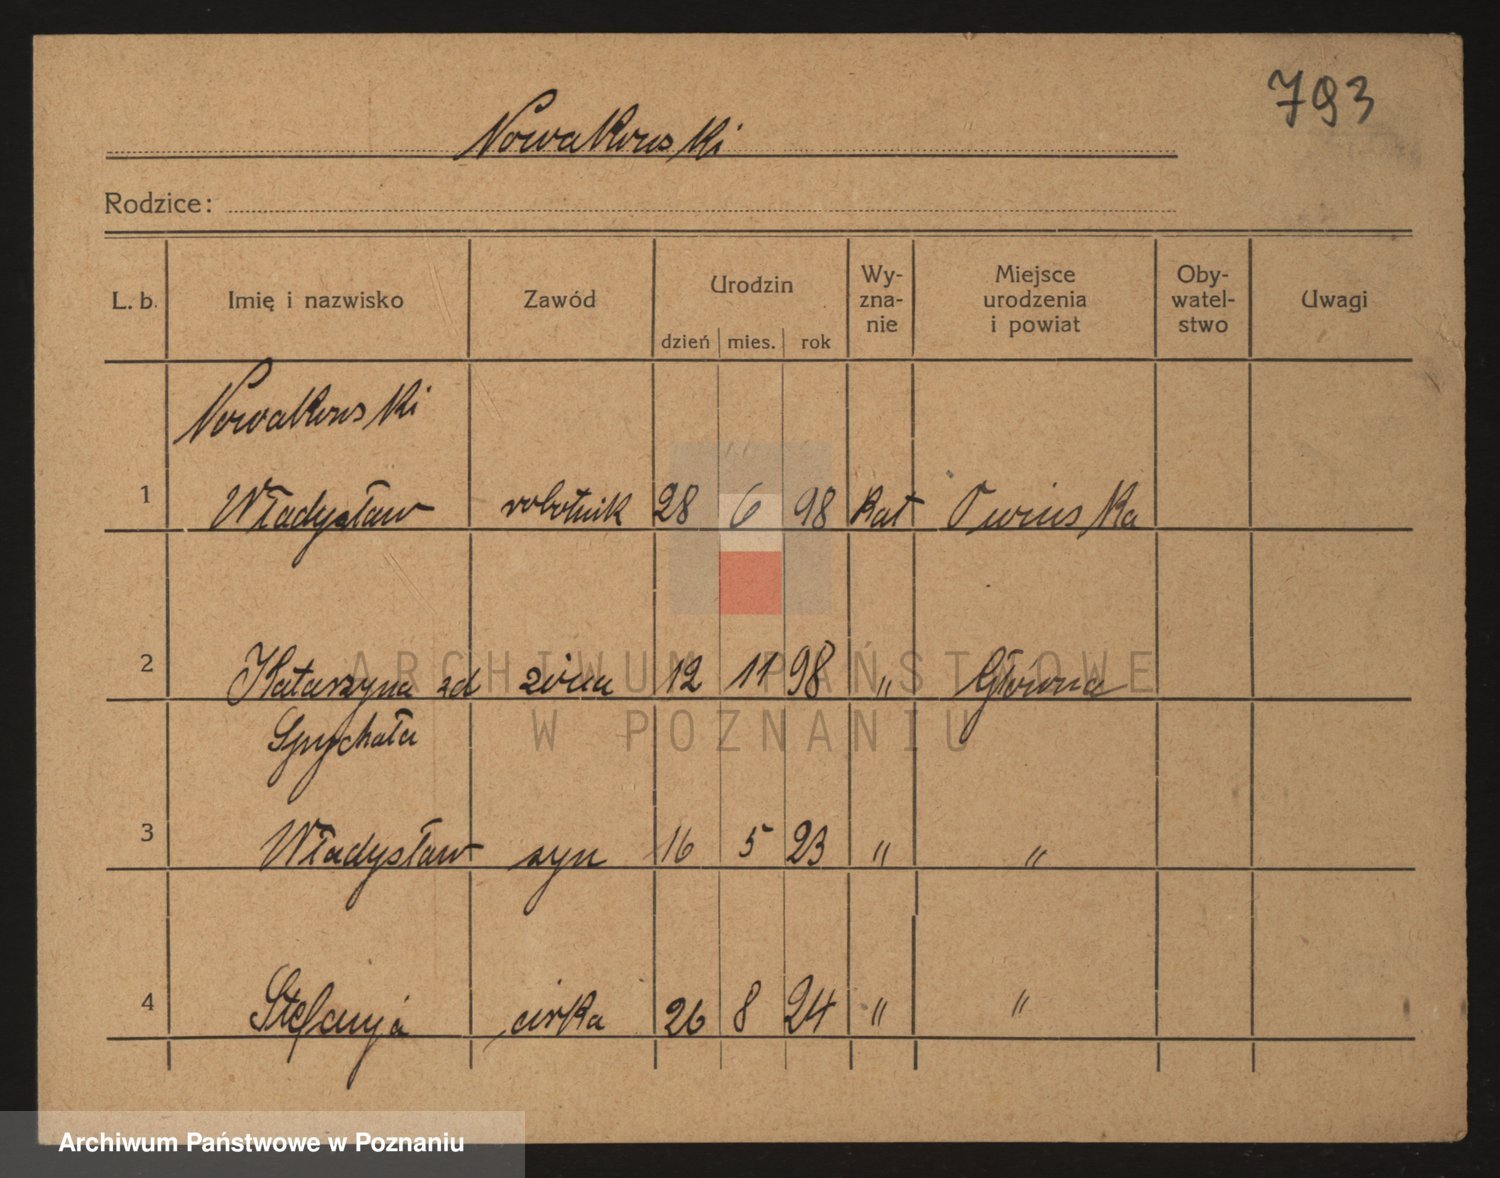 793
Nowakowski
Rodzice:
L. b. Imię i nazwisko Zawód Urodzin dzień mies. rok Wy-zna-nie Miejsce urodzenia i powiat Oby-watel-stwo Uwagi
Nowakowski
1 Władysław robotnik 28 6 98 kat Owinska
2 Katarzyna zd żona 12 11 98 " Główna
Spychała
3 Władysław syn 16 5 23 " "
4 Stefanja córka 26 8 24 " "
ARCHIWUM PAŃSTWOWE
W POZNANIU
Archiwum Państwowe w Poznaniu